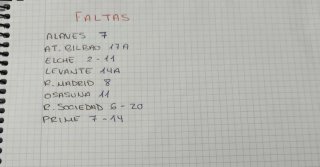 FALTAS
ALAVES 7
AT. BILBAO 17A
ELCHE 2-11
LEVANTE 14A
R. MADRID 8
OSASUNA 11
R. SOCIEDAD 6-20
PRIME 7-14